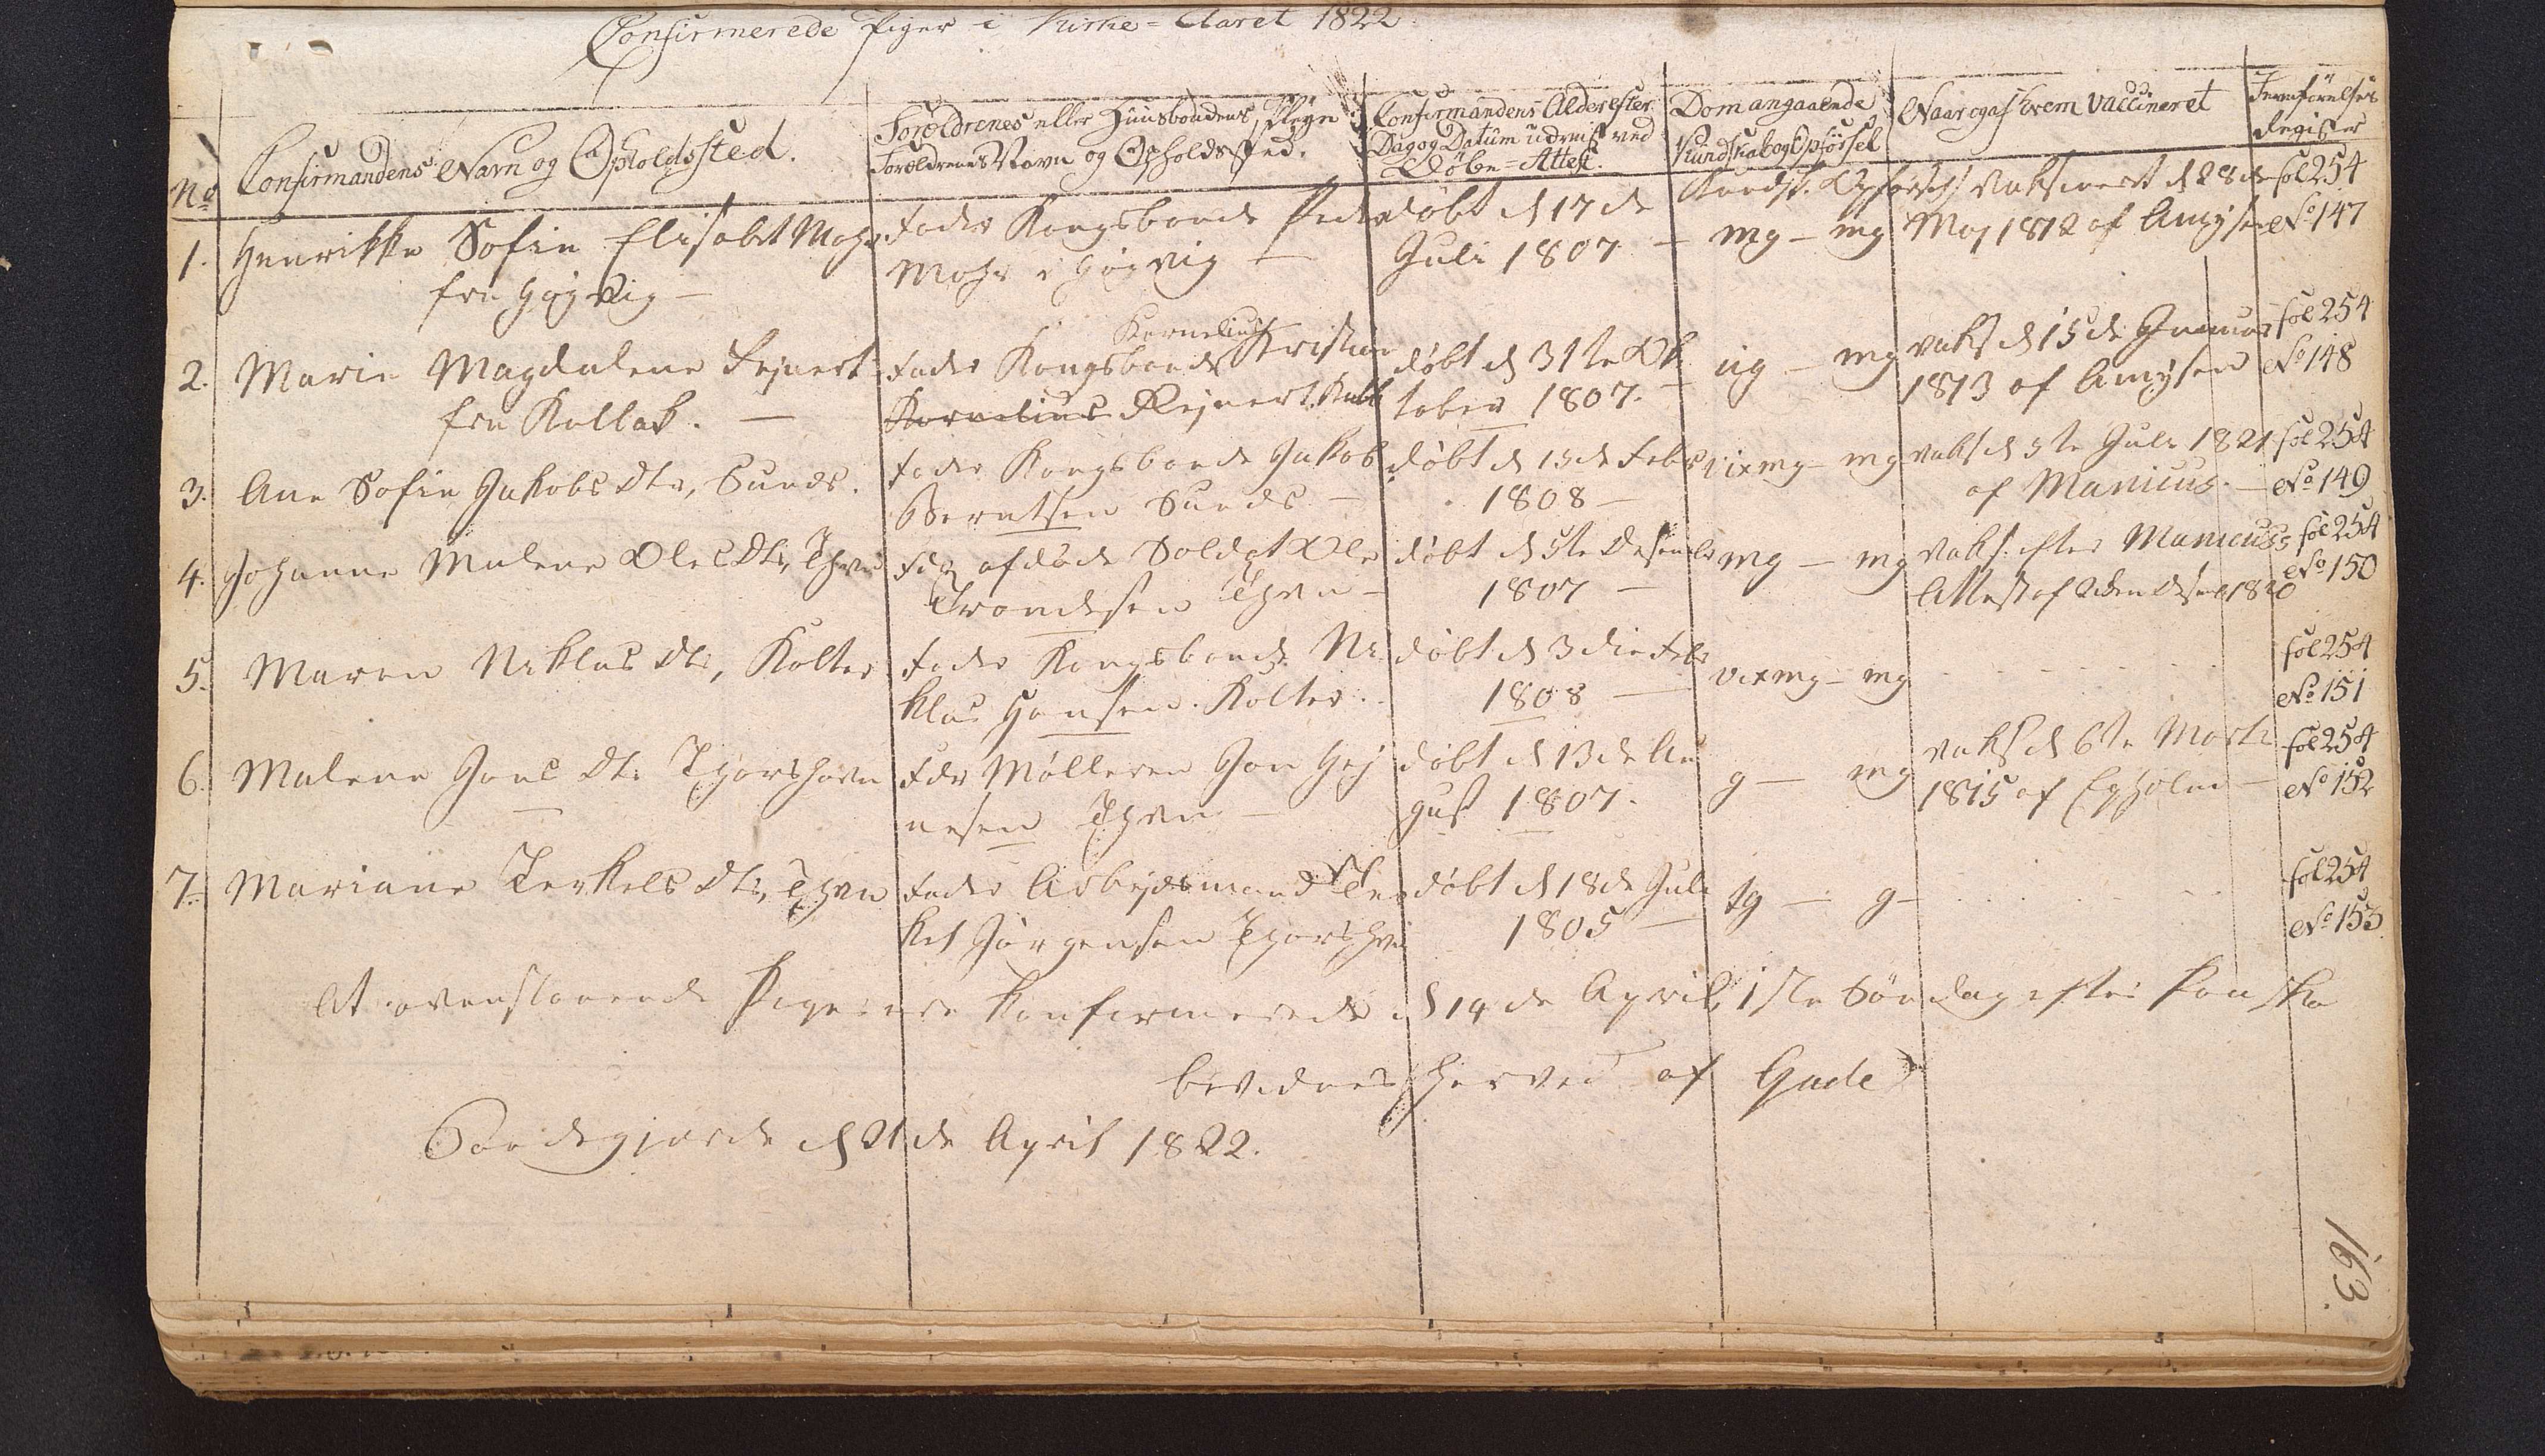 Confirmerede Piger i Kirke-Aaret 1822
No
Confirmandens Navn og Opholdssted.
Forældrenes eller Huusbondens, Pleye
Forældrenes Navn og Opholdssted.
Confirmandens Alder efter
Dag og Datum udviist ved
Døbe-Attest.
Dom angaaende
Kundskab og Opførsel
Naar og af hvem vaccineret
Jevnførelses
Register
1. Henrikke Sofie Elisabet Mohr
fra Højvig —
Fader Kongsbonde Peder
Mohr i Højvig —
døbt d 17de
Juli 1807 —
Kundsk. Opførsel
mg — mg
Vaksineret d 28de
Maj 1812 af Amysen
fol 254
No 147
2. Marie Magdalene Rejnert
fra Kollab. —
Fader Kongsbonde Kornelius Kristian
Kornelius Rejnert, Koll
døbt d 31te Ok
tober 1807. —
ug — mg
vaks d 15de Januar
1813 af Amysen
fol 254
No 148
3. Ane Sofie Jakobs Dtr, Sunds.
Fader Kongsbonde Jakob
Berntsen Sunds —
døbt d 15de Febr
1808 —
vix mg — mg
vaks d 5te Juli 1821
af Manicus. —
fol 254
No 149
4. Johanne Malene Oles Dtr, Thvn
Fdr afdøde Soldat Ole
Trondesen Thvn —
døbt d 5te Desembr
1807 —
mg — mg
Vaks. efter Manicus's
Attest af 2den Desbr 1820
fol 254
No 150
5. Maren Niklas Dtr, Kolter
Fader Kongsbonde Ni
klas Hansen. Kolter..
døbt d 3die Febr
1808 —
vix mg — mg
fol 254
No 151
6. Malene Jons Dtr Thorshavn
Fdr Mølleren Jon Hej
nesen Thvn —
døbt d 13de Au
gust 1807.
g — mg
vaks d 6te Marts
1815 af Egholm —
fol 254
No 152
7. Mariane Terkels Dtr, Thvn
Fader Arbejdsmand Ter
kel Jørgensen Thorshvn
døbt d 18de Juli
1805 —
tg — g —
fol 254
No 153
At ovenstaaende Piger ere konfirmerede d 14de April, 1ste Søndag efter Paaske
bevidnes herved af Gade
Sandegjærde d 21de April 1822.
163.